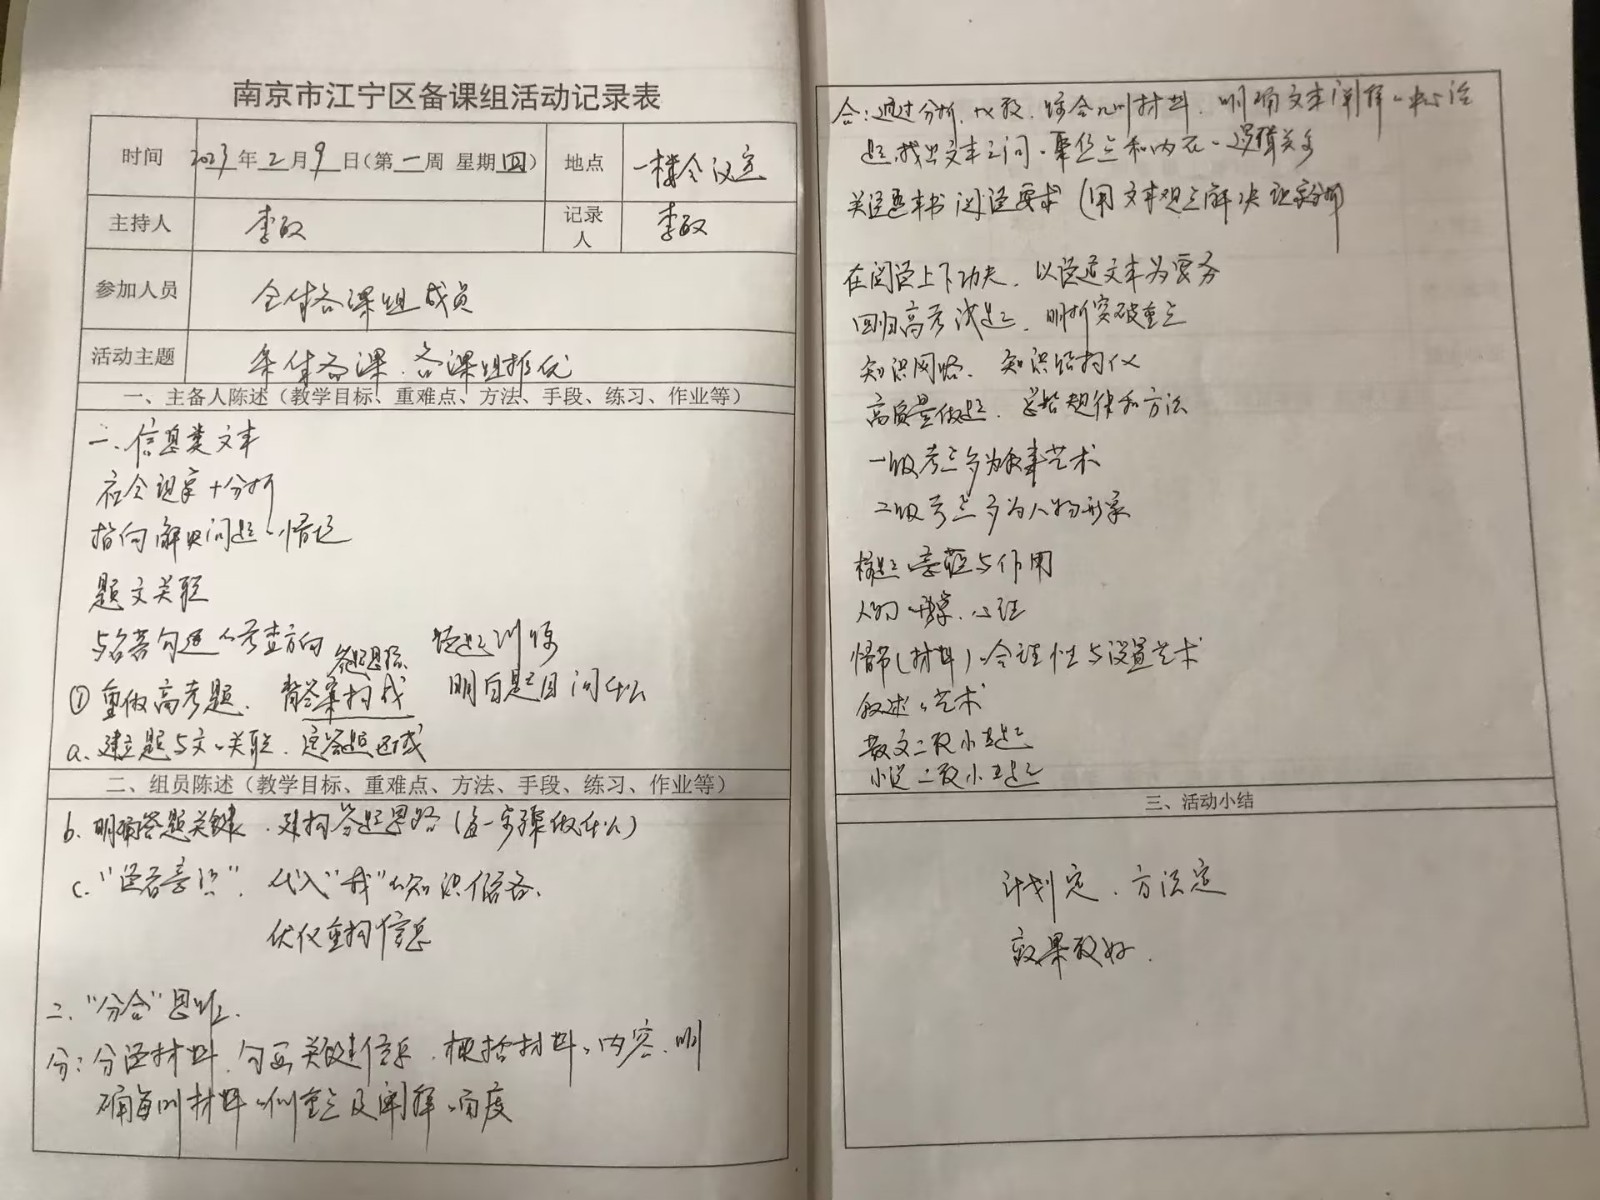 南京市江宁区备课组活动记录表
时间 2023年2月9日(第一周 星期四) 地点 一楼会议室
主持人 李敏 记录人 李敏
参加人员 全体备课组成员
活动主题 集体备课、备课组推优
一、主备人陈述（教学目标、重难点、方法、手段、练习、作业等）
一、信息类文本
社会现象+分析
指向解决问题的情境
题文关联
与名著勾连的考查方向 答题思路 限题训练
①重做高考题、 答案构成 明白题目问什么
a.建立题与文的关联、定答题区域
二、组员陈述（教学目标、重难点、方法、手段、练习、作业等）
b.明确答题关键、建构答题思路(每一步骤做什么)
c."读者意识"、代入"我"的知识储备、
优化重构信息
二、"分合"思维.
分:分读材料、勾画关键信息、概括材料的内容、明
确每则材料的侧重点及阐释的角度
合:通过分析、比较、综合几则材料、明确文本阐释的中心话
题、找出文本之间的重叠点和内在的逻辑关系
关注整本书阅读要求(用文本观点解决现实分析)
在阅读上下功夫、以读透文本为要务
回归高考试题、明析突破重点
知识网络、知识结构化
高质量做题、总结规律和方法
一级考点多为叙事艺术
二级考点多为人物形象
标题意蕴与作用
人的形象、心理
情节(材料)的合理性与设置艺术
叙述的艺术
散文二及小主题
小说二及小主题
三、活动小结
计划定、方法定
效果较好.